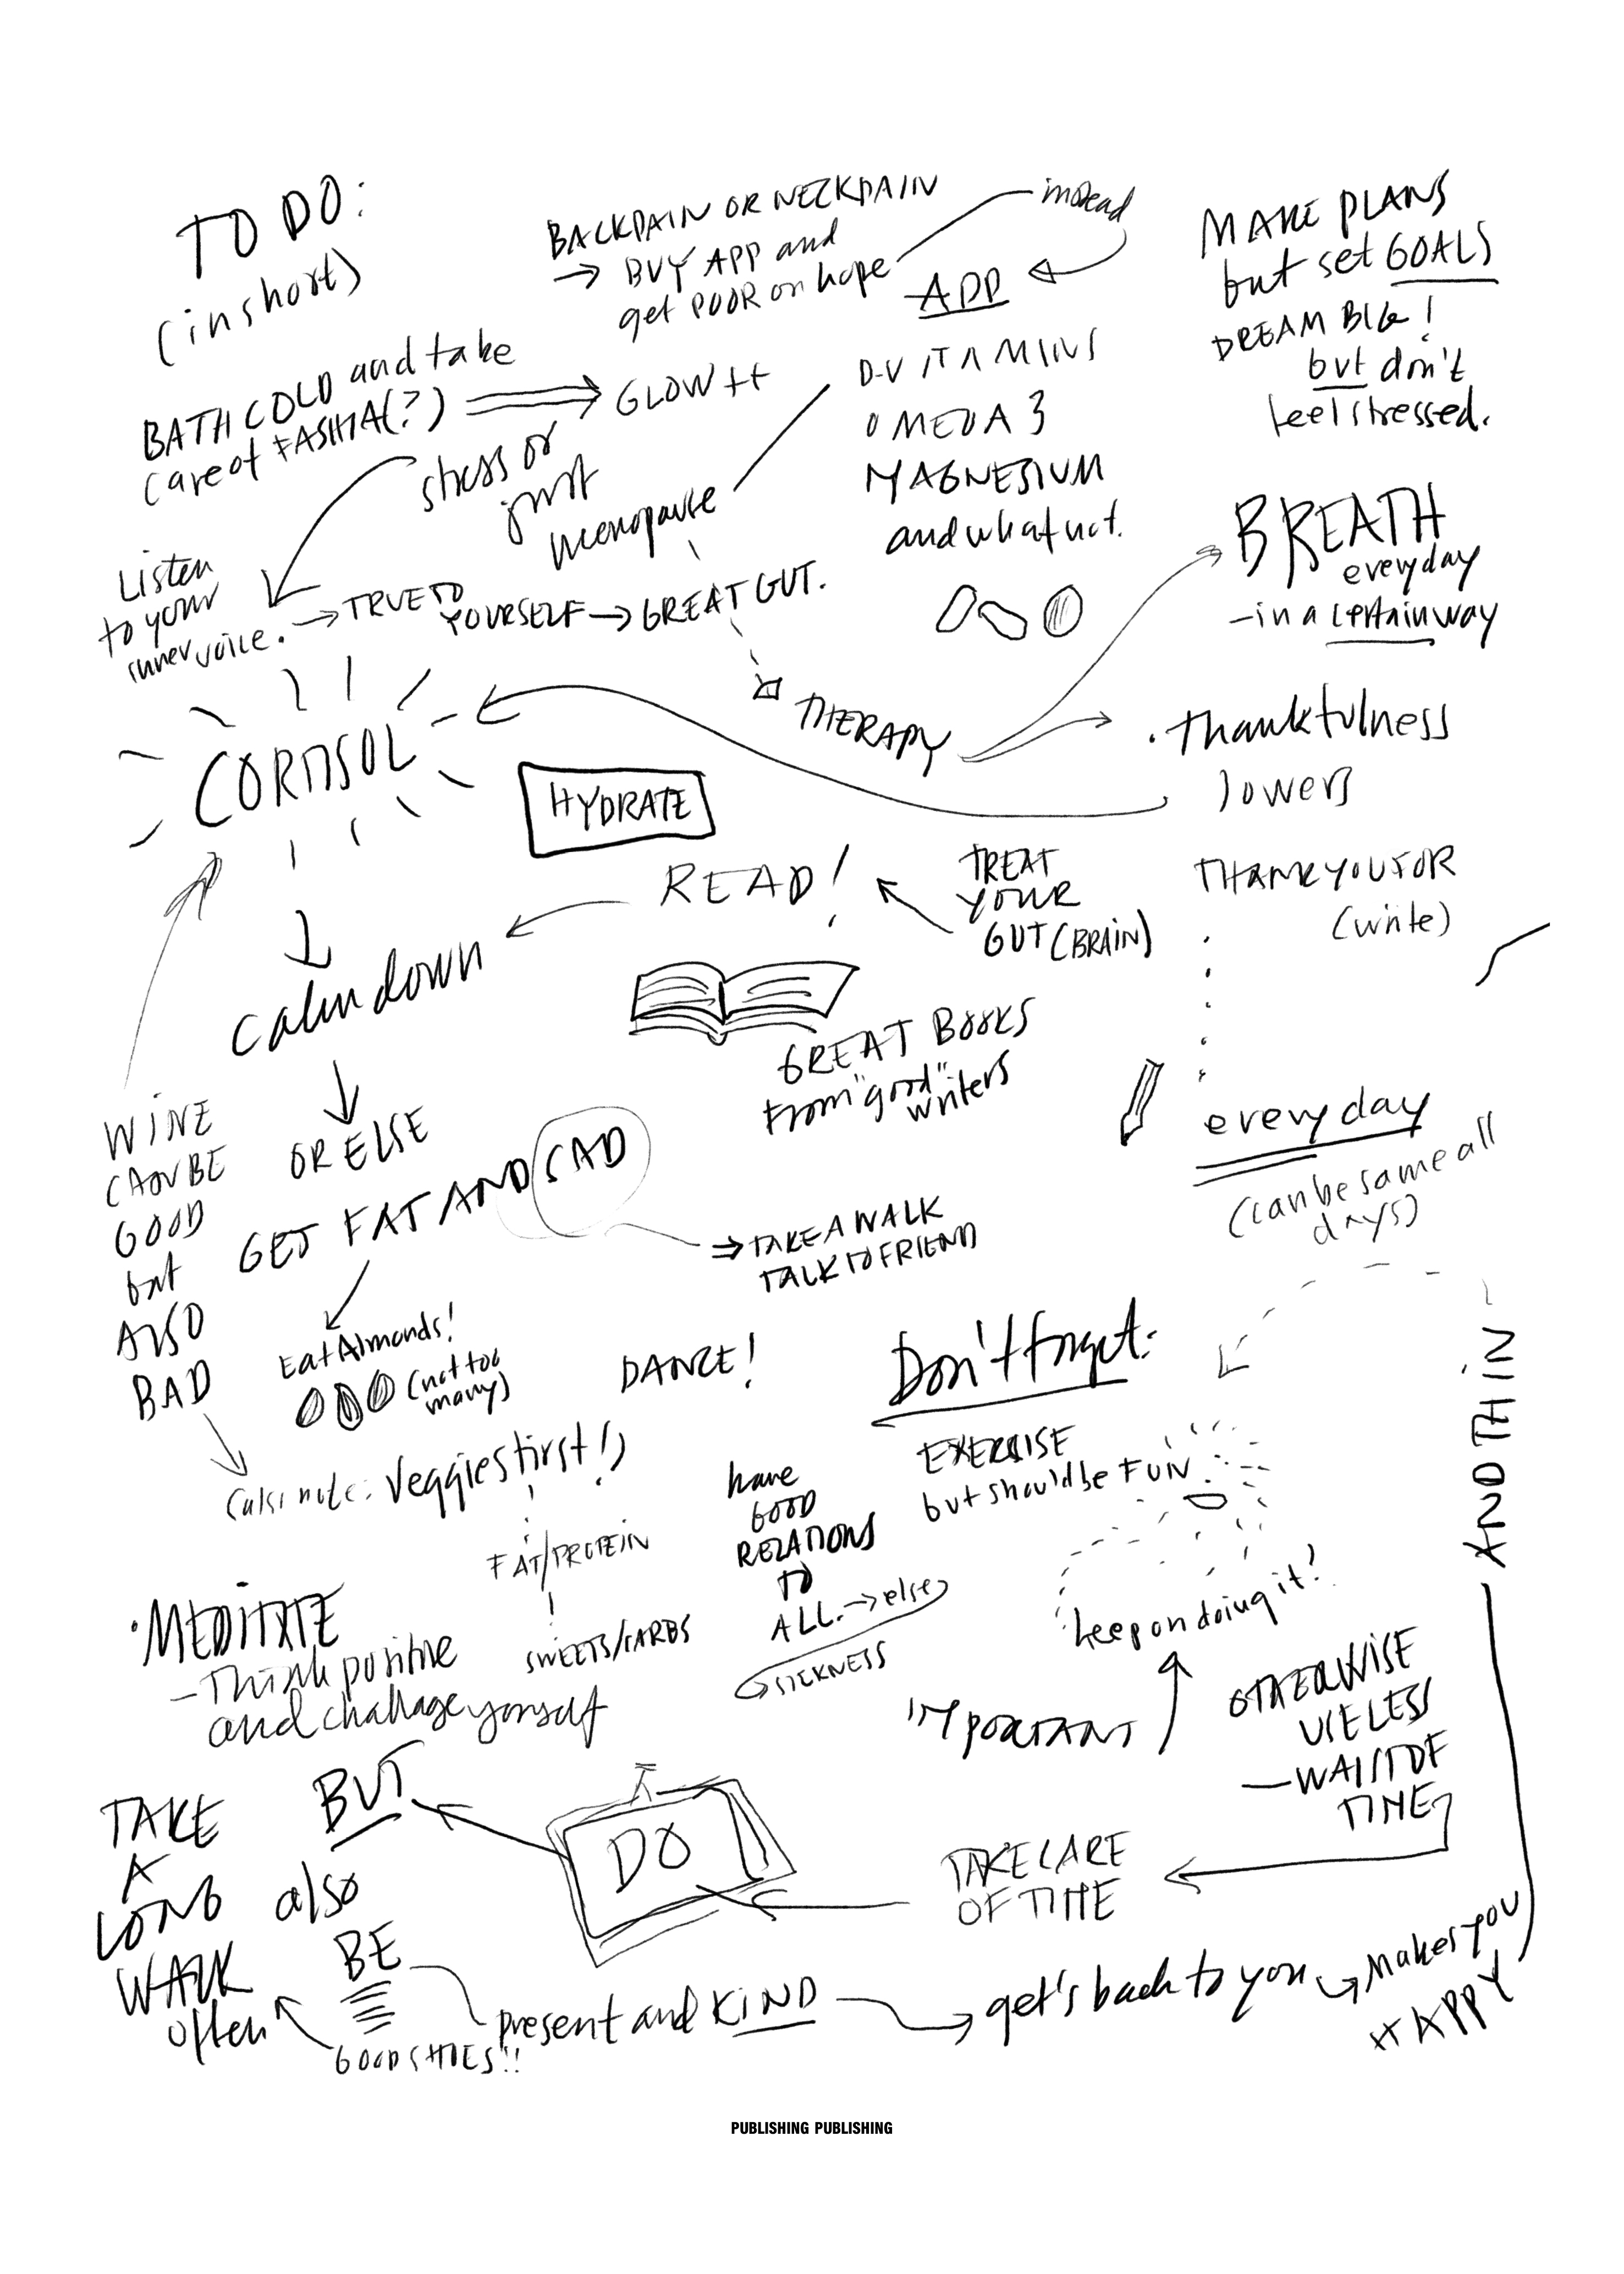 TO DO:
(in short)
BACKPAIN OR NECKPAIN
→ BUY APP and
get POOR on hope
instead
APP
MAKE PLANS
but set GOALS
DREAM BIG!
but don't
feel stressed.
BATH COLD and take
care of FASHIA(?)
GLOW ++
D-VITAMINS
OMEGA 3
MAGNESIUM
and what not.
stress or
just
menopause
Listen
to your
inner voice.
→ TRUE TO
YOURSELF → GREAT GUT.
BREATH
everyday
- in a certain way
THERAPY
• thankfulness
lowers
CORTISOL
HYDRATE
READ!
TREAT
YOUR
GUT (BRAIN)
THANK YOU FOR
(write)
calm down
GREAT BOOKS
from "good"
writers
everyday
(can be same all
days)
WINE
CAN BE
GOOD
but
ALSO
BAD
OR ELSE
GET FAT AND SAD
⇒ TAKE A WALK
TALK TO FRIEND
Eat Almonds!
(not too
many)
DANCE!
Don't forget:
EXERCISE
but should be FUN
AND THIN
(also note: Veggies first!)
FAT/PROTEIN
SWEETS/CARBS
have
GOOD
RELATIONS
TO
ALL. → else
SICKNESS
keep on doing it!
IMPORTANT
OTHERWISE
USELESS
- WAIST OF
TIME
• MEDITATE
- Think positive
and challage yorself
BUT
also
BE
DO
TAKE CARE
OF TIME
TAKE
A
LONG
WALK
often
GOOD SHOES!!
present and KIND
get's back to you
makes you
HAPPY
PUBLISHING PUBLISHING